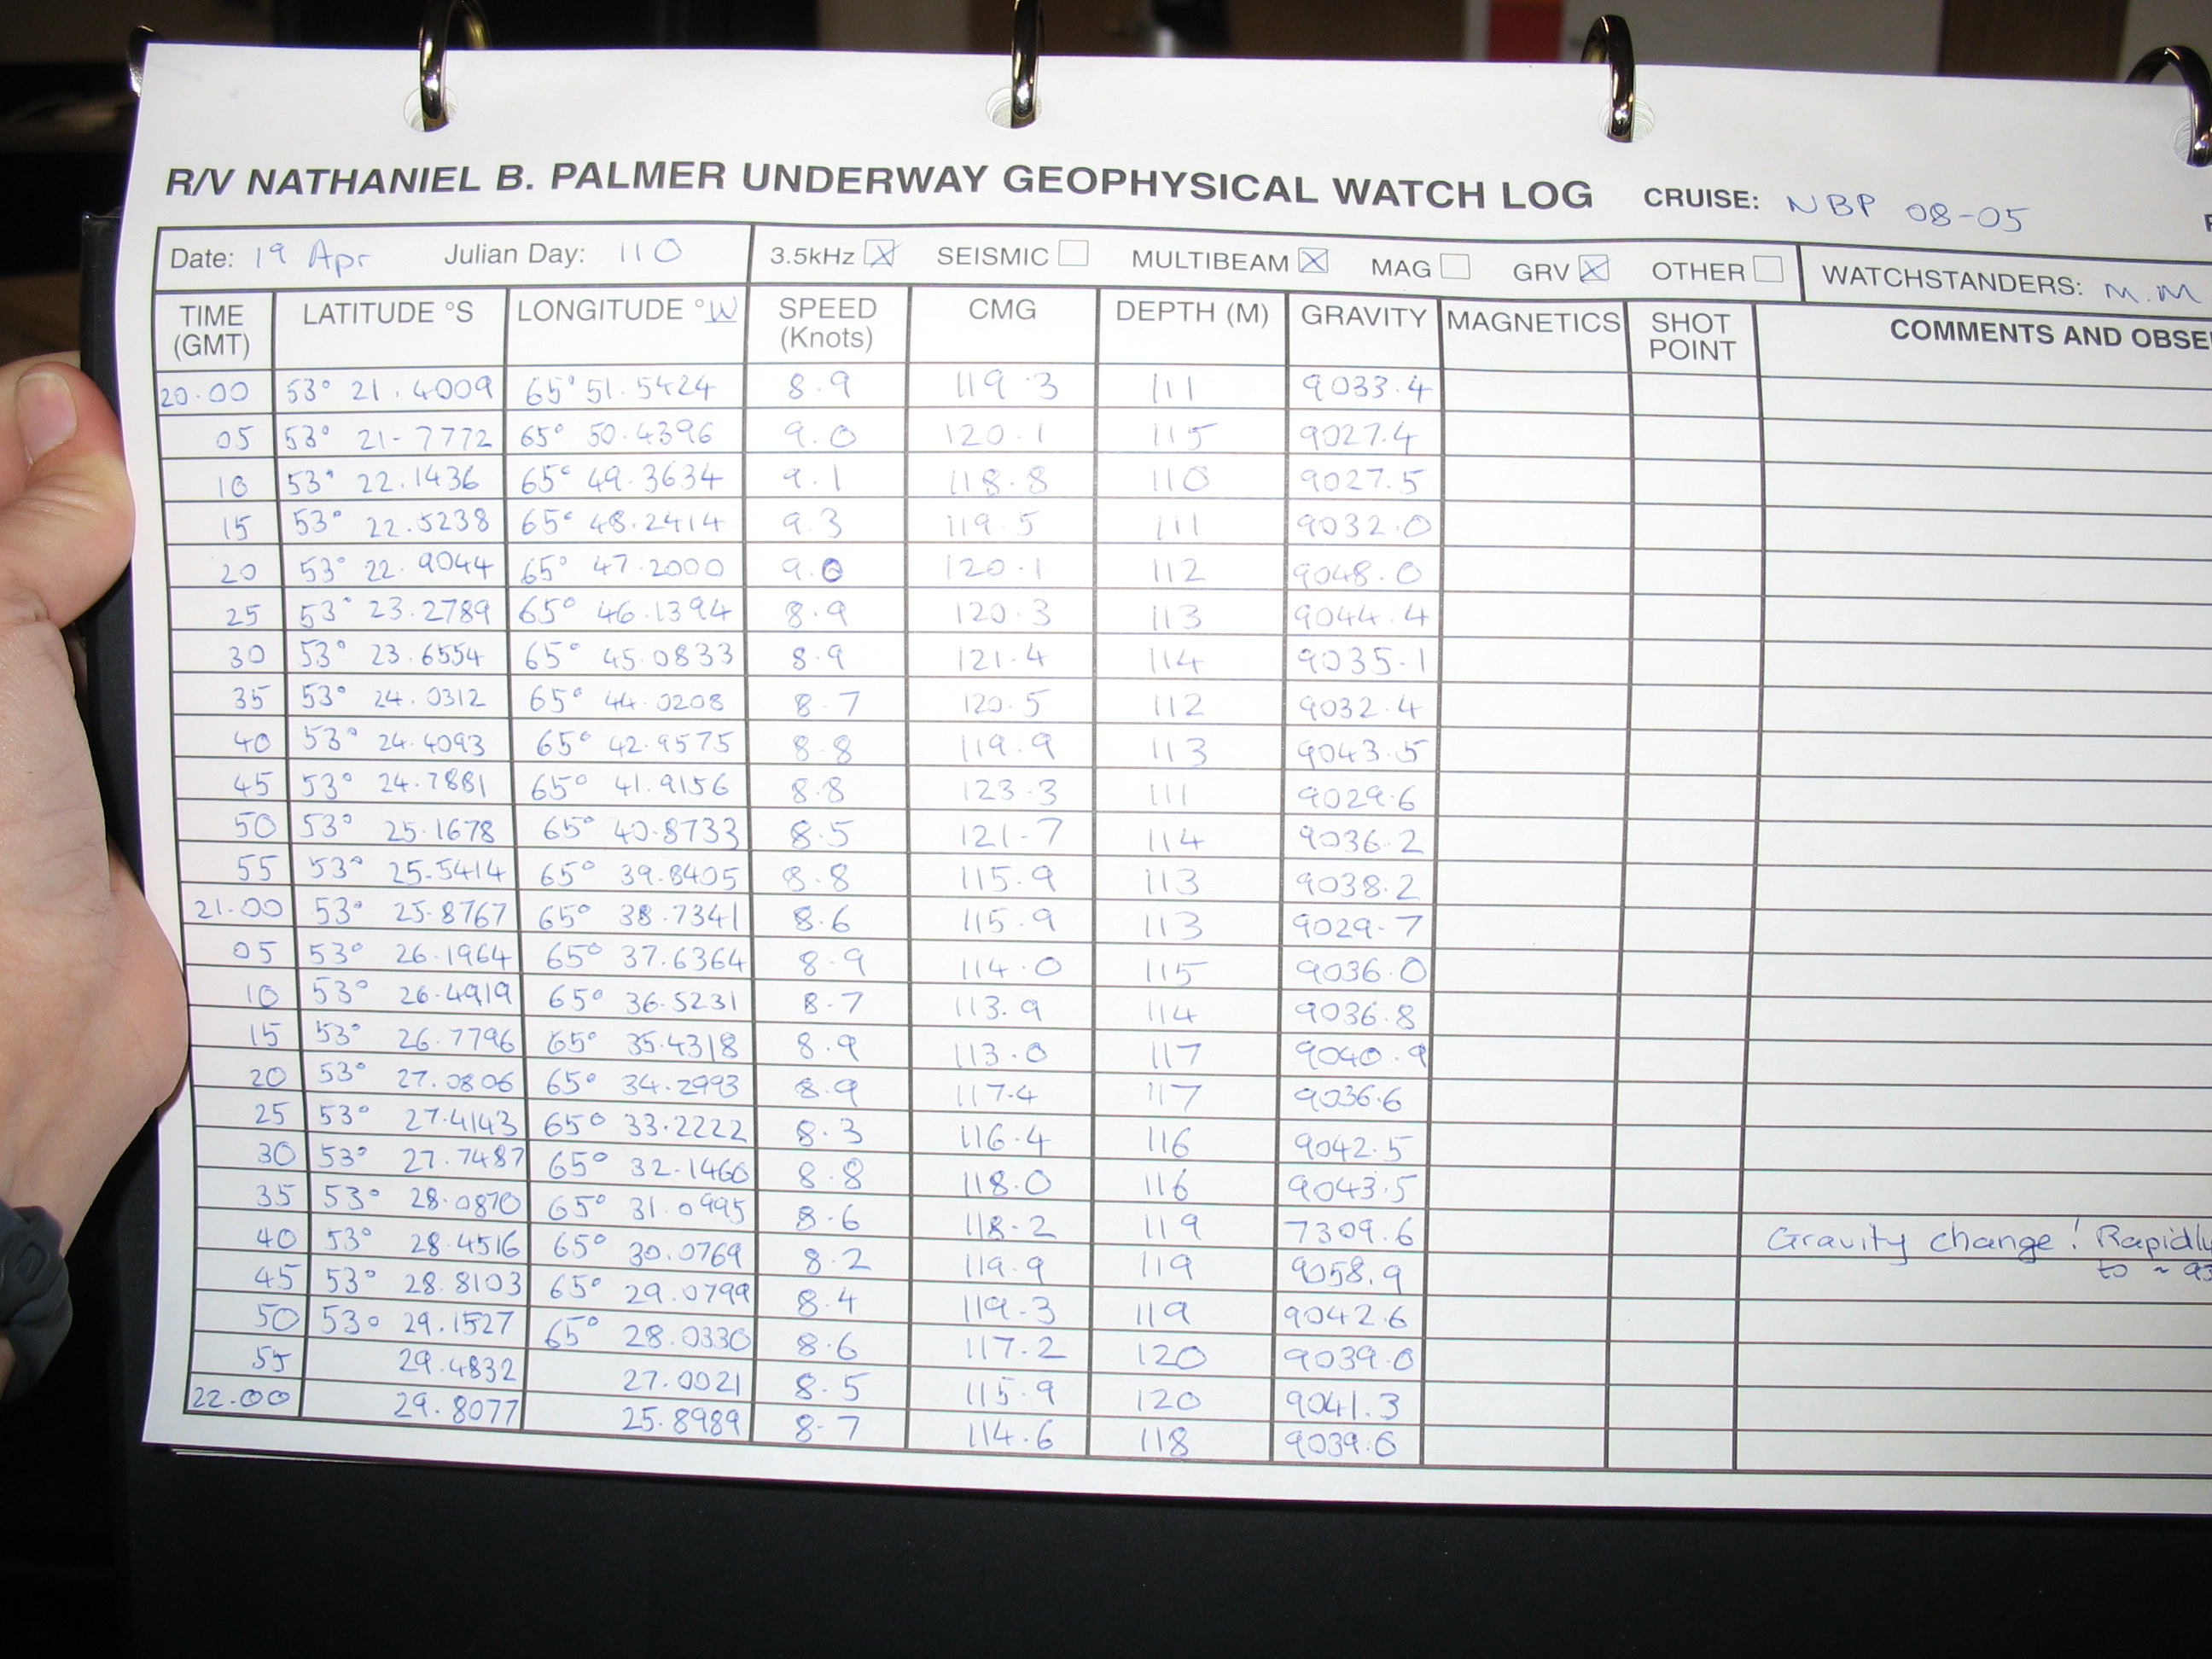 R/V NATHANIEL B. PALMER UNDERWAY GEOPHYSICAL WATCH LOG CRUISE: NBP 08-05
Date: 19 Apr Julian Day: 110 3.5kHz SEISMIC MULTIBEAM MAG GRV OTHER WATCHSTANDERS: M.M
TIME (GMT) LATITUDE °S LONGITUDE °W SPEED (Knots) CMG DEPTH (M) GRAVITY MAGNETICS SHOT POINT COMMENTS AND
20.00 53° 21.4009 65° 51.5424 8.9 119.3 111 9033.4
05 53° 21-7772 65° 50.4396 9.0 120.1 115 9027.4
10 53° 22.1436 65° 49.3634 9.1 118.8 110 9027.5
15 53° 22.5238 65° 48.2414 9.3 119.5 111 9032.0
20 53° 22.9044 65° 47.2000 9.0 120.1 112 9048.0
25 53° 23.2789 65° 46.1394 8.9 120.3 113 9044.4
30 53° 23.6554 65° 45.0833 8.9 121.4 114 9035.1
35 53° 24.0312 65° 44.0208 8.7 120.5 112 9032.4
40 53° 24.4093 65° 42.9575 8.8 119.9 113 9043.5
45 53° 24.7881 65° 41.9156 8.8 123.3 111 9029.6
50 53° 25.1678 65° 40.8733 8.5 121-7 114 9036.2
55 53° 25.5414 65° 39.8405 8.8 115.9 113 9038.2
21.00 53° 25.8767 65° 38.7341 8.6 115.9 113 9029-7
05 53° 26.1964 65° 37.6364 8.9 114.0 115 9036.0
10 53° 26.4919 65° 36.5231 8.7 113.9 114 9036.8
15 53° 26.7796 65° 35.4318 8.9 113.0 117 9040.9
20 53° 27.0806 65° 34.2993 8.9 117.4 117 9036.6
25 53° 27.4143 65° 33.2222 8.3 116.4 116 9042.5
30 53° 27.7487 65° 32.1460 8.8 118.0 116 9043.5
35 53° 28.0870 65° 31.0995 8.6 118.2 119 7309.6 Gravity change! Rapidly
40 53° 28.4516 65° 30.0769 8.2 119.9 119 9058.9 to ~
45 53° 28.8103 65° 29.0799 8.4 119.3 119 9042.6
50 53° 29.1527 65° 28.0330 8.6 117.2 120 9039.0
55 29.4832 27.0021 8.5 115.9 120 9041.3
22.00 29.8077 25.8989 8.7 114.6 118 9039.6